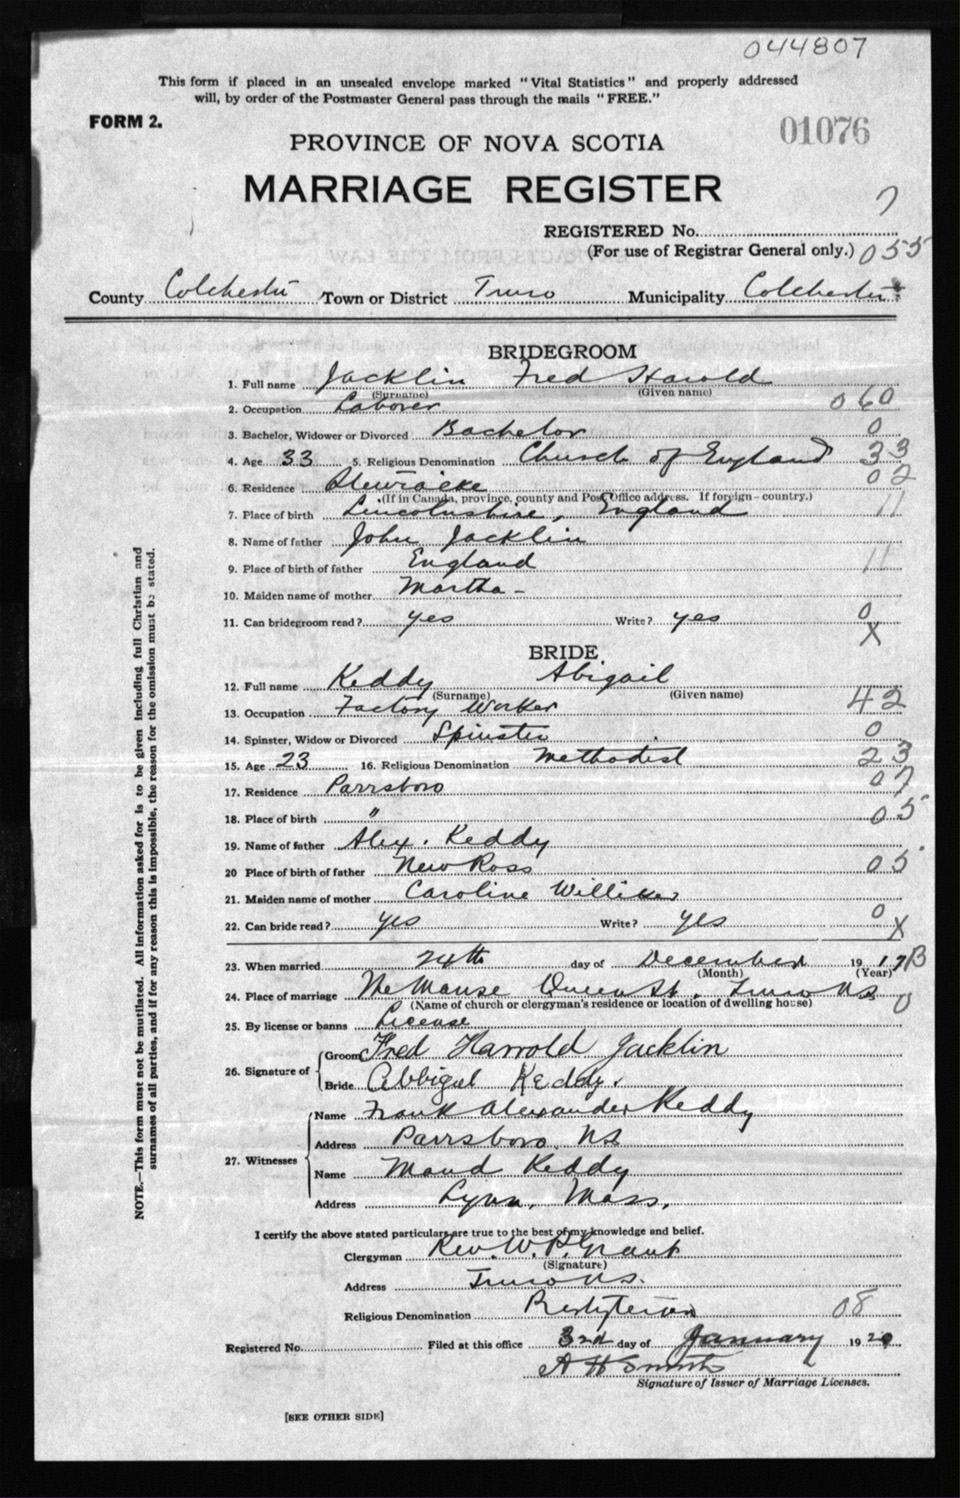 044807
This form if placed in an unsealed envelope marked "Vital Statistics" and properly addressed
will, by order of the Postmaster General pass through the mails "FREE."
FORM 2.
01076
PROVINCE OF NOVA SCOTIA
MARRIAGE REGISTER
7
REGISTERED No.
(For use of Registrar General only.) 055
County Colchester Town or District Truro Municipality Colchester
BRIDEGROOM
1. Full name Jacklin Fred Harold
(Surname) (Given name)
2. Occupation Laborer 060
3. Bachelor, Widower or Divorced Bachelor 0
4. Age 33 5. Religious Denomination Church of England 33
6. Residence Stewiacke 02
(If in Canada, province, county and Post Office address. If foreign—country.)
7. Place of birth Lincolnshire, England 11
8. Name of father John Jacklin
9. Place of birth of father England 11
10. Maiden name of mother Martha -
11. Can bridegroom read? yes Write? yes 0
X
BRIDE
12. Full name Keddy Abigail
(Surname) (Given name)
13. Occupation Factory Worker 42
14. Spinster, Widow or Divorced Spinster 0
15. Age 23 16. Religious Denomination Methodist 23
17. Residence Parrsboro 07
18. Place of birth " 05
19. Name of father Alex. Keddy
20 Place of birth of father New Ross 05
21. Maiden name of mother Caroline
22. Can bride read? yes Write? yes 0 X
23. When married 24th day of December 1919 B
(Month) (Year)
24. Place of marriage The Manse Queen St. Truro NS 0
(Name of church or clergyman's residence or location of dwelling house)
25. By license or banns License
26. Signature of
Groom Fred Harrold Jacklin
Bride Abbigul Keddy.
27. Witnesses
Name Frank Alexander Keddy
Address Parrsboro, NS
Name Maud Keddy
Address Lynn, Mass.
I certify the above stated particulars are true to the best of my knowledge and belief.
Clergyman Rev. W. P. Grant
(Signature)
Address Truro NS.
Religious Denomination Presbyterian 08
Registered No. Filed at this office 3rd day of January 1920
A H Smith
Signature of Issuer of Marriage Licenses.
[SEE OTHER SIDE]
NOTE.—This form must not be mutilated. All information asked for is to be given including full Christian and
surnames of all parties, and if for any reason this is impossible, the reason for the omission must be stated.